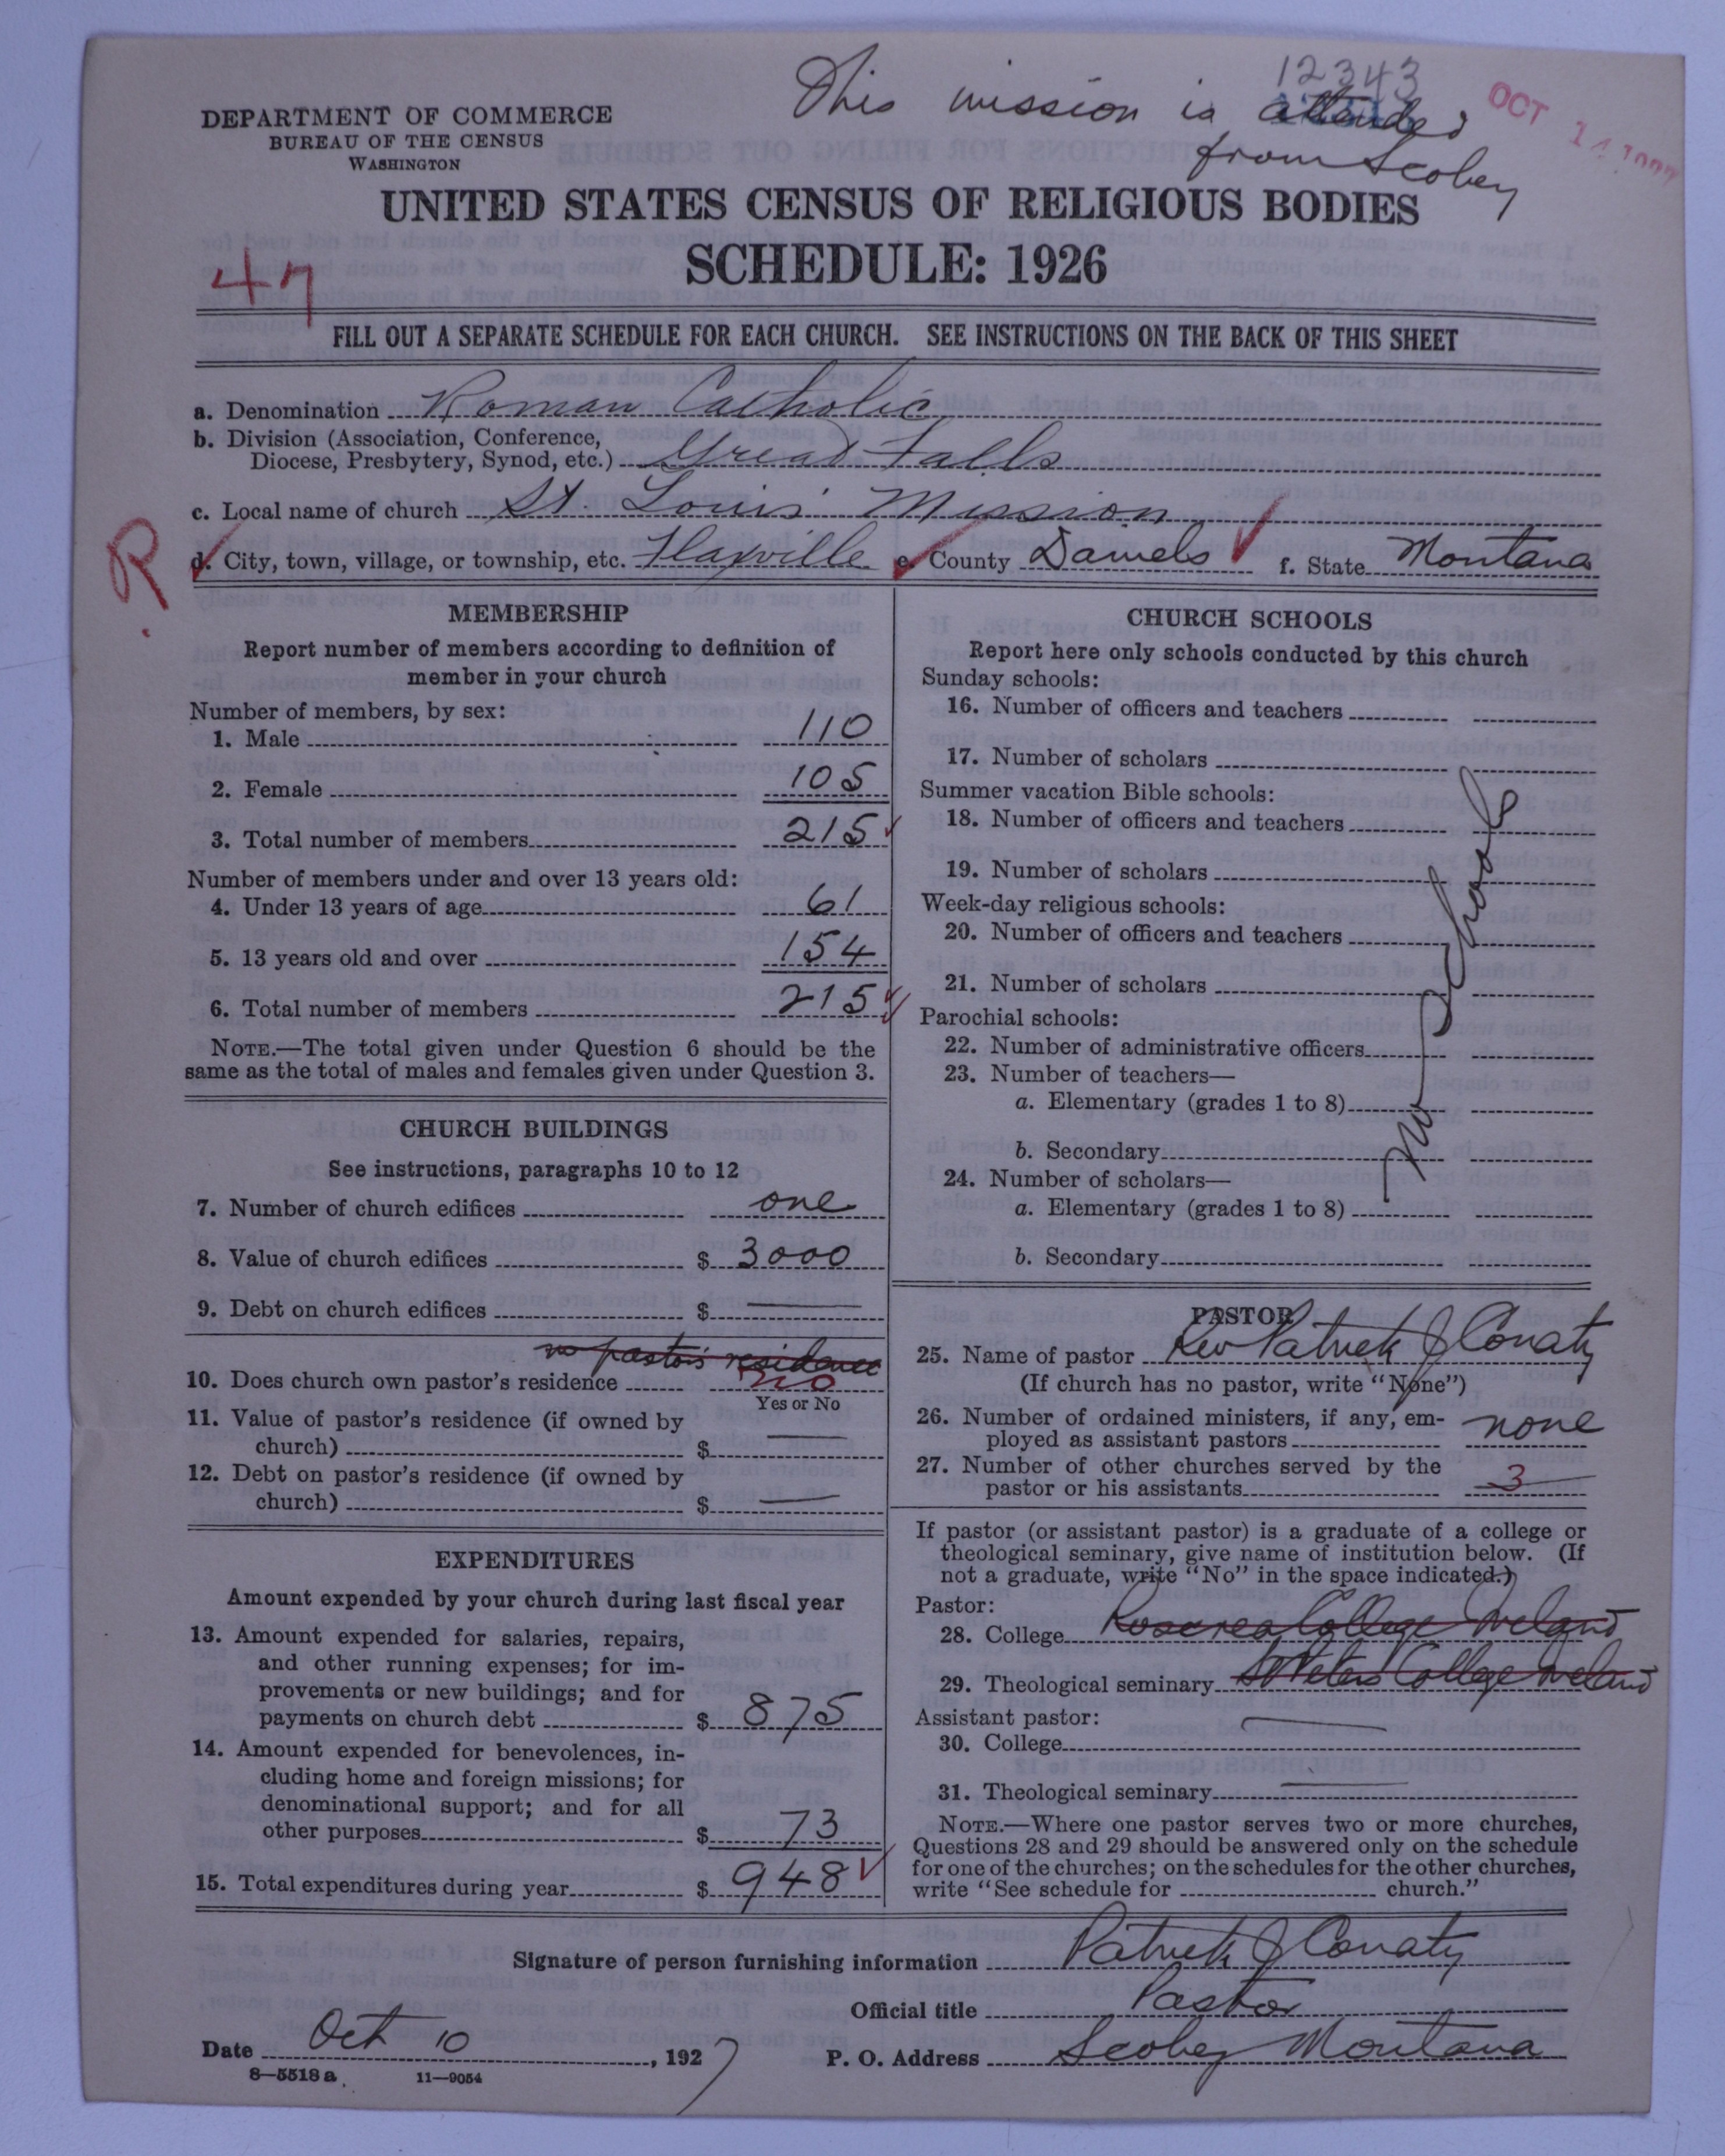 This mission is attended
12343
from Scobey
OCT 14 1927
DEPARTMENT OF COMMERCE
BUREAU OF THE CENSUS
WASHINGTON
UNITED STATES CENSUS OF RELIGIOUS BODIES
SCHEDULE: 1926
47
FILL OUT A SEPARATE SCHEDULE FOR EACH CHURCH. SEE INSTRUCTIONS ON THE BACK OF THIS SHEET
a. Denomination Roman Catholic
b. Division (Association, Conference,
Diocese, Presbytery, Synod, etc.) Great Falls
c. Local name of church St. Louis' Mission
R
d. City, town, village, or township, etc. Flaxville e. County Daniels f. State Montana
MEMBERSHIP
Report number of members according to definition of
member in your church
Number of members, by sex:
1. Male 110
2. Female 105
3. Total number of members 215
Number of members under and over 13 years old:
4. Under 13 years of age 61
5. 13 years old and over 154
6. Total number of members 215
NOTE.—The total given under Question 6 should be the
same as the total of males and females given under Question 3.
CHURCH BUILDINGS
See instructions, paragraphs 10 to 12
7. Number of church edifices one
8. Value of church edifices $ 3000
9. Debt on church edifices $ —
no pastor's residence
10. Does church own pastor's residence no
Yes or No
11. Value of pastor's residence (if owned by
church) $ —
12. Debt on pastor's residence (if owned by
church) $ —
EXPENDITURES
Amount expended by your church during last fiscal year
13. Amount expended for salaries, repairs,
and other running expenses; for im-
provements or new buildings; and for
payments on church debt $ 875
14. Amount expended for benevolences, in-
cluding home and foreign missions; for
denominational support; and for all
other purposes $ 73
15. Total expenditures during year $ 948
CHURCH SCHOOLS
Report here only schools conducted by this church
Sunday schools:
16. Number of officers and teachers
17. Number of scholars
Summer vacation Bible schools:
18. Number of officers and teachers
19. Number of scholars
Week-day religious schools:
20. Number of officers and teachers
21. Number of scholars
Parochial schools:
22. Number of administrative officers
23. Number of teachers—
a. Elementary (grades 1 to 8)
b. Secondary
24. Number of scholars—
a. Elementary (grades 1 to 8)
b. Secondary
No School
PASTOR
25. Name of pastor Rev Patrick J Conaty
(If church has no pastor, write "None")
26. Number of ordained ministers, if any, em-
ployed as assistant pastors none
27. Number of other churches served by the
pastor or his assistants 3
If pastor (or assistant pastor) is a graduate of a college or
theological seminary, give name of institution below. (If
not a graduate, write "No" in the space indicated.)
Pastor:
28. College Roscrea College Ireland
29. Theological seminary St Peters College Ireland
Assistant pastor:
30. College —
31. Theological seminary —
NOTE.—Where one pastor serves two or more churches,
Questions 28 and 29 should be answered only on the schedule
for one of the churches; on the schedules for the other churches,
write "See schedule for church."
Signature of person furnishing information Patrick J Conaty
Official title Pastor
Date Oct 10, 1927 P. O. Address Scobey Montana
8—5518a 11—9054